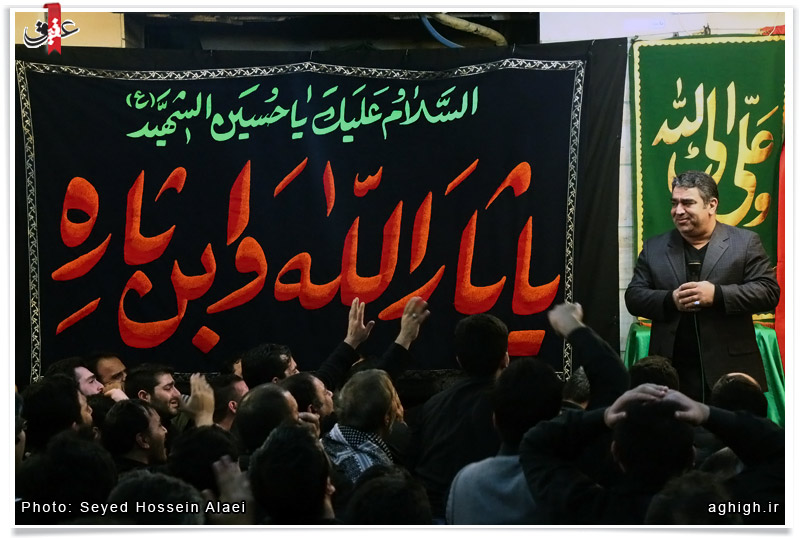 عقیق
السلام علیک یا حسین الشهید (ع)
یا ثار الله وابن ثاره
علی ولی الله
Photo: Seyed Hossein Alaei
aghigh.ir